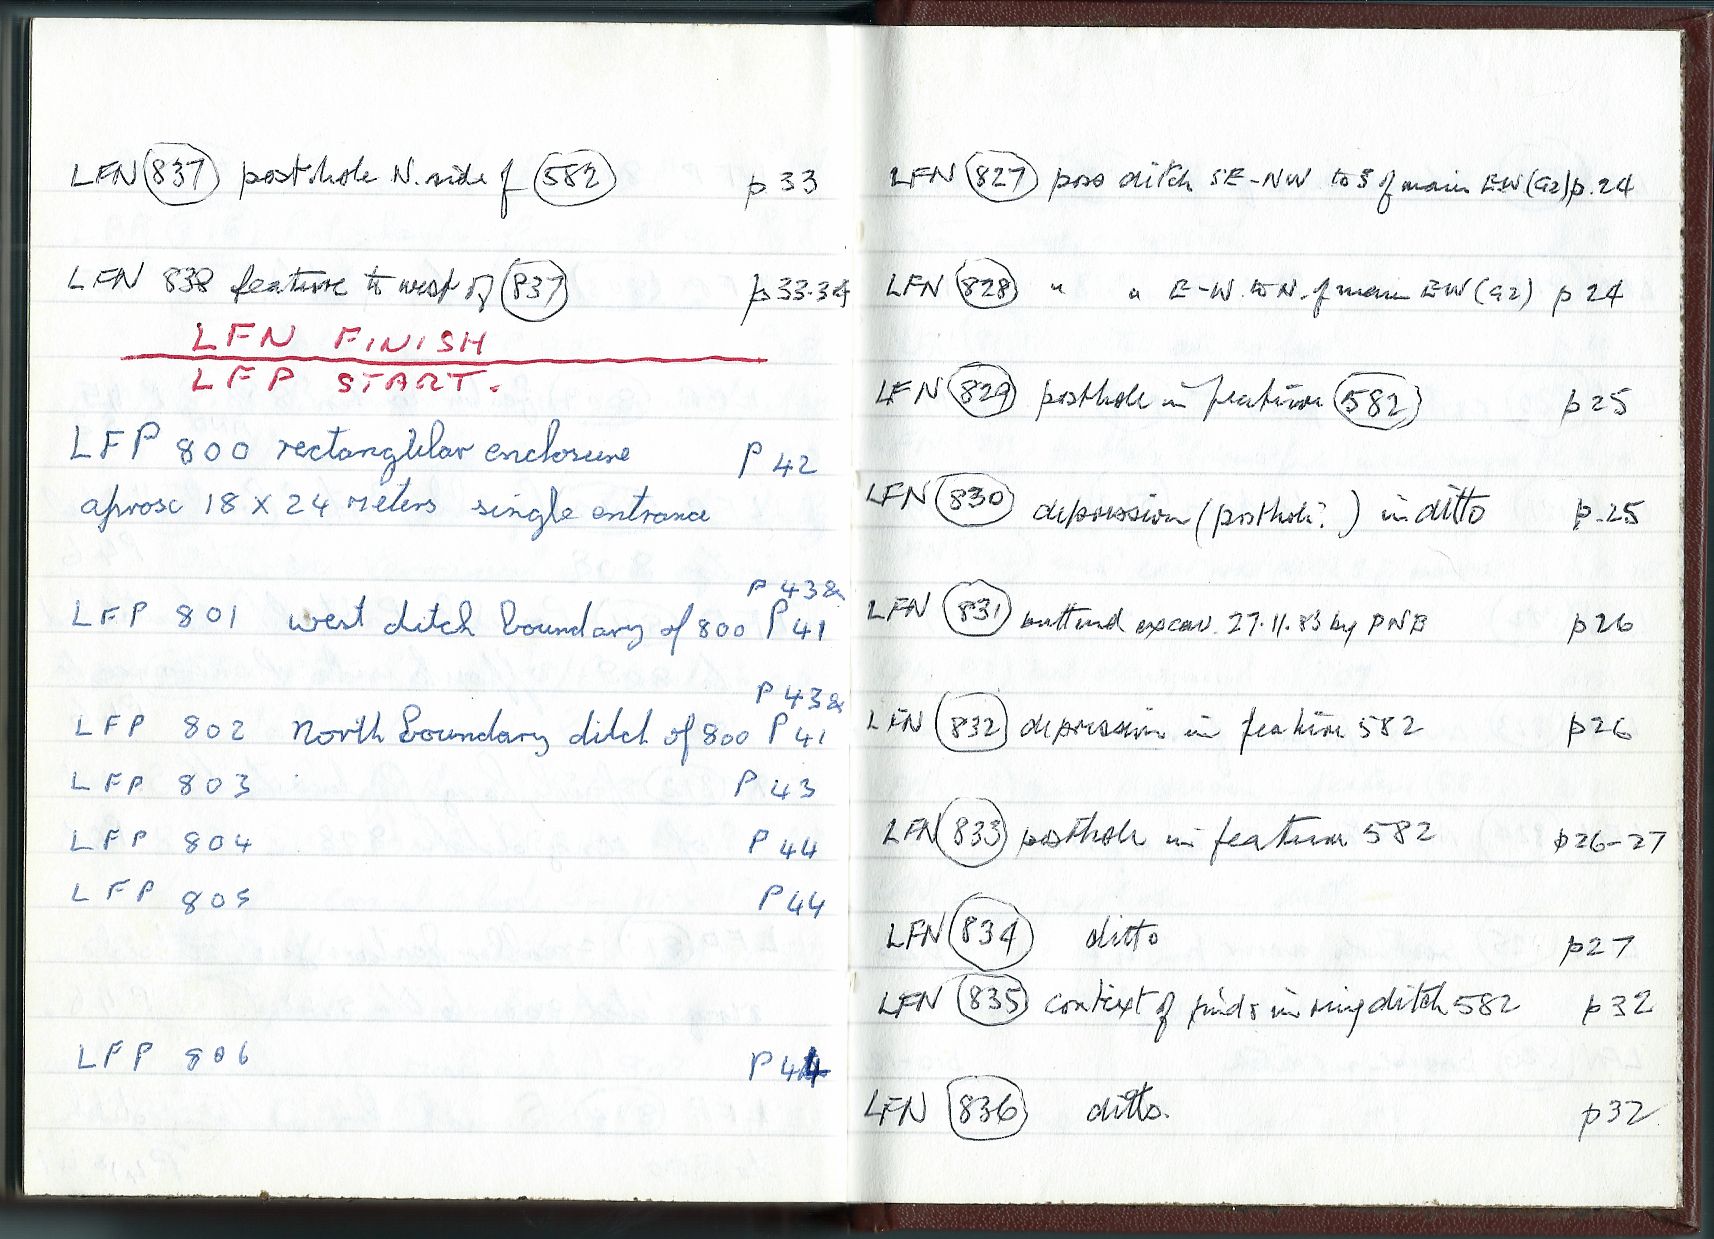 LFN 837 posthole N. side of 582 p 33
LFN 838 feature to west of 837 p 33-34
LFN FINISH
LFP START.
LFP 800 rectanglular enclosure P 42
aprosc 18 x 24 meters single entrance
P 43 &
LFP 801 west ditch boundary of 800 P 41
P 43 &
LFP 802 North boundary ditch of 800 P 41
LFP 803 P 43
LFP 804 P 44
LFP 805 P 44
LFP 806 P 44
LFN 827 poss ditch SE-NW to S of main EW (92) p. 24
LFN 828 " " E-W to N. of main EW (92) p 24
LFN 829 posthole in feature 582 p 25
LFN 830 depression (posthole?) in ditto p. 25
LFN 831 buttend excav. 27.11.83 by PNB p 26
LFN 832 depression in feature 582 p 26
LFN 833 posthole in feature 582 p 26-27
LFN 834 ditto p 27
LFN 835 context of finds in ring ditch 582 p 32
LFN 836 ditto. p 32